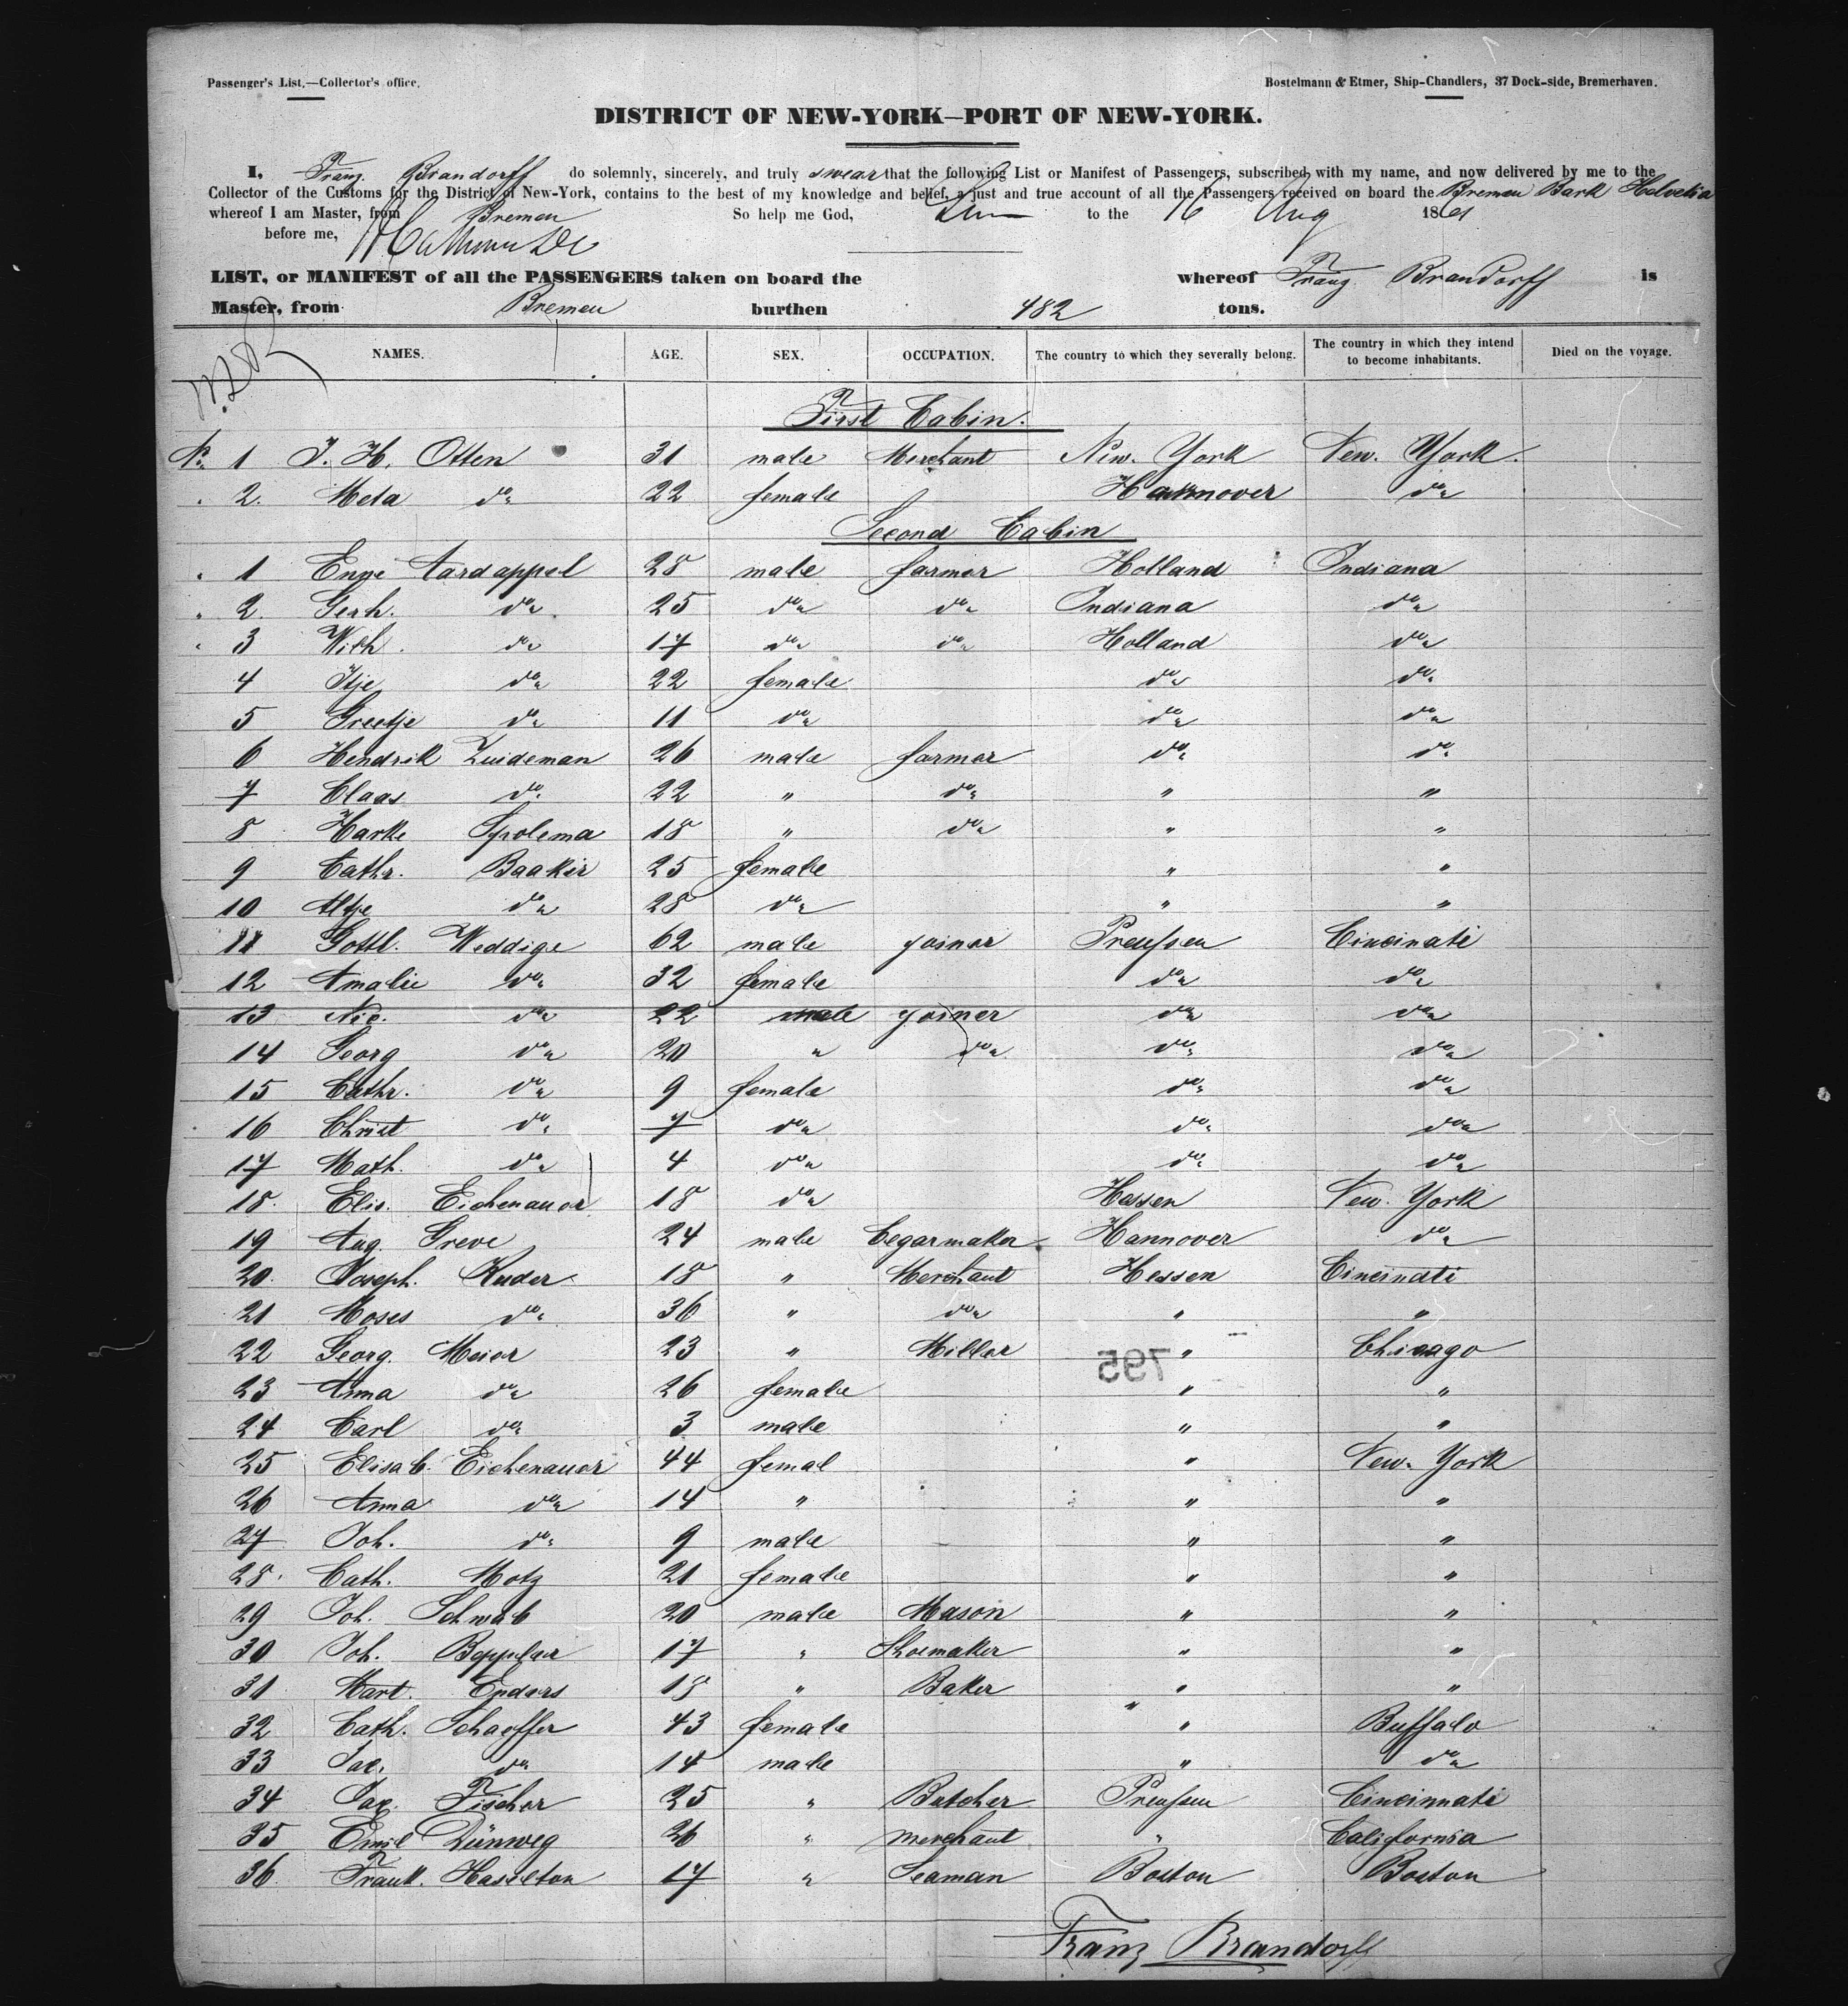 Passenger's List.—Collector's office. Bostelmann & Etmer, Ship-Chandlers, 37 Dock-side, Bremerhaven.
DISTRICT OF NEW-YORK—PORT OF NEW-YORK.
I, Franz Brandorff do solemnly, sincerely, and truly swear that the following List or Manifest of Passengers, subscribed with my name, and now delivered by me to the
Collector of the Customs for the District of New-York, contains to the best of my knowledge and belief, a just and true account of all the Passengers received on board the Bremen Bark Helvetia
whereof I am Master, from Bremen So help me God, to the 16 Aug 1861
before me,
LIST, or MANIFEST of all the PASSENGERS taken on board the whereof Franz Brandorff is
Master, from Bremen burthen 482 tons.
NAMES. AGE. SEX. OCCUPATION. The country to which they severally belong. The country in which they intend to become inhabitants. Died on the voyage.
First Cabin.
No. 1 J. H. Otten 31 male Merchant New. York New. York.
" 2. Meta do 22 female Hannover do
Second Cabin
" 1 Enne Aardappel 28 male farmer Holland Indiana
" 2 Gerh. do 25 do do Indiana do
" 3 Wilh. do 17 do do Holland do
4 Itje do 22 female do do
5 Greetje do 11 do do do
6 Hendrik Zuideman 26 male farmer do do
7 Claas do 22 " do " "
8 Harke Spolema 18 " do " "
9 Cathr. Baakir 25 female " "
10 Altje do 28 do " "
11 Gottl. Weddige 62 male joiner Preußen Cincinati
12 Amalie do 32 female do do
13 Nic. do 22 male joiner do do
14 Georg do 20 " do do do
15 Cathr. do 9 female do do
16 Christ do 7 do do do
17 Math. do 4 do do do
18. Elis. Eichenauer 18 do Hessen New. York
19 Aug. Greve 24 male Cegarmaker Hannover do
20. Joseph. Kuder 18 " Merchant Hessen Cincinati
21 Moses do 36 " do " "
22 Georg. Meier 23 " Miller " Chicago
795
23 Anna do 26 female " "
24 Carl do 3 male " "
25 Elisab. Eichenauer 44 femal " New. York
26 Anna do 14 " " "
27 Joh. do 9 male " "
28. Cath. Motz 21 female " "
29 Joh. Schwab 20 male Mason " "
30 Joh. Beppler 17 " Shoemaker " "
31 Mart. Enders 18 " Baker " "
32 Cath. Schaeffer 43 female " Buffalo
33 Jac. do 14 male " do
34 Jac. Fischer 25 " Butcher Preußen Cincinnati
35 Emil Dünweg 26 " merchant " California
36 Frank. Haselton 17 " Seaman Boston Boston
Franz Brandorff